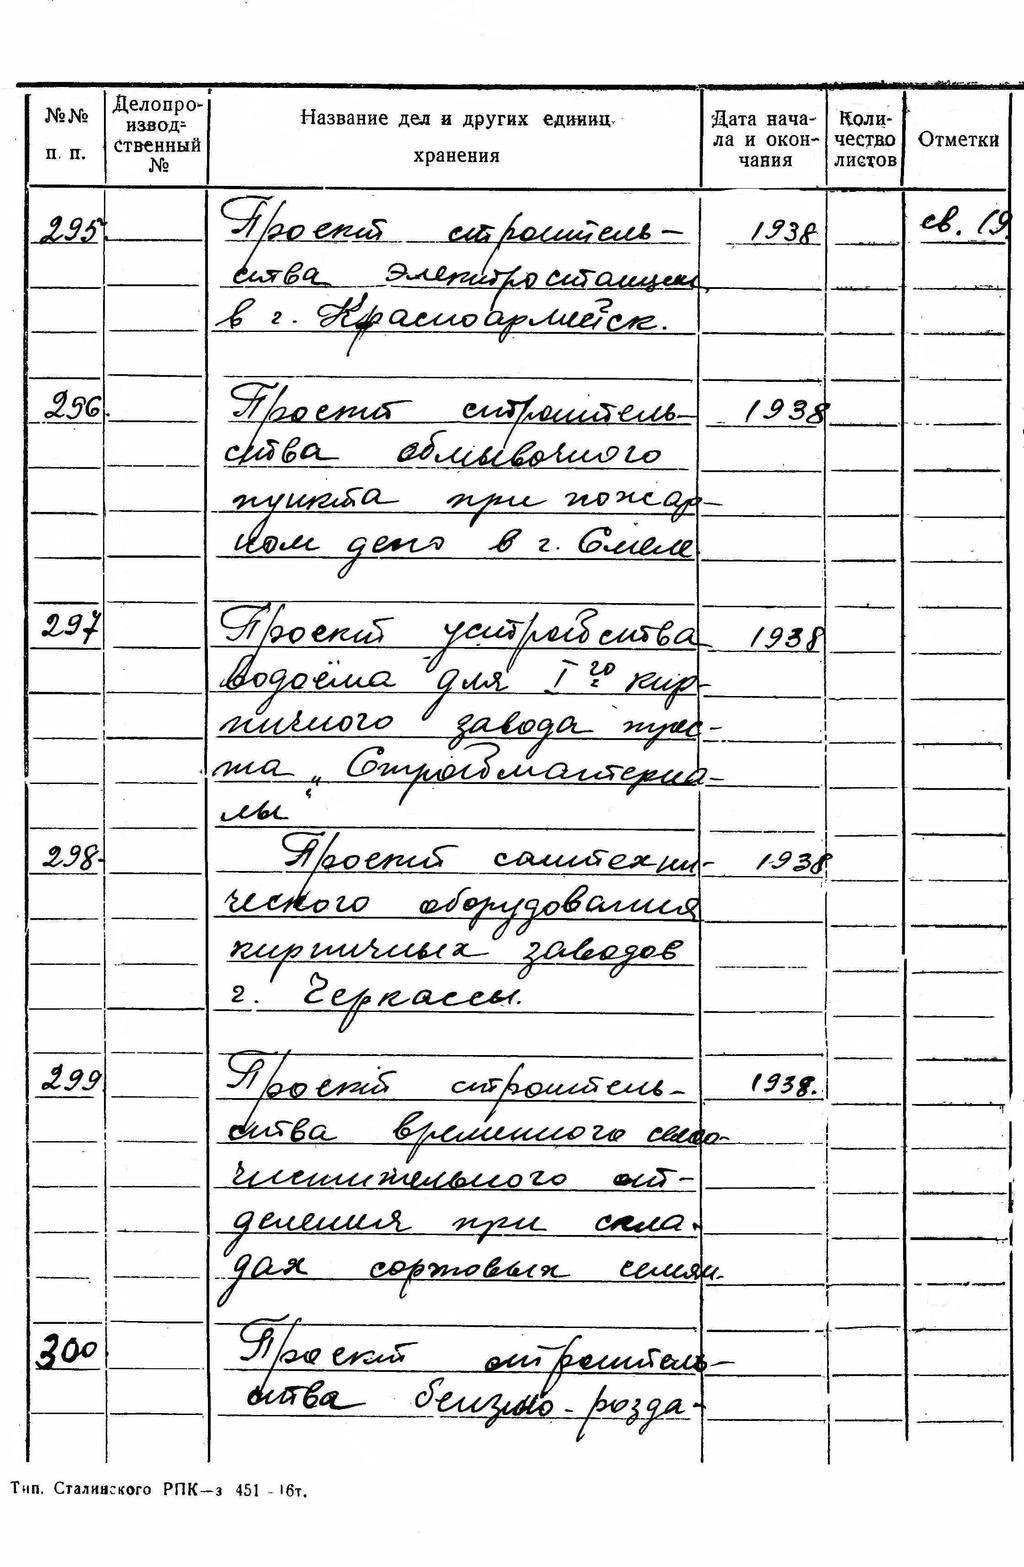 №№ п. п.
Делопро-
извод-
ственный
№
Название дел и других единиц
хранения
Дата нача-
ла и окон-
чания
Коли-
чество
листов
Отметки
295. Проект строитель- 1938 св. 19
ства электростанции
в г. Красноармейск.
296. Проект строитель- 1938
ства обмывочного
пункта при пожар-
ном депо в г. Смеле
297 Проект устройства 1938
водоёма для I го кир-
пичного завода трес-
та „Стройматериа-
лы"
298. Проект сантехни- 1938
ческого оборудования
кирпичных заводов
г. Черкассы.
299. Проект строитель- 1938.
ства временного семяо-
чистительного от-
деления при скла-
дах сортовых семян.
300 Проект строитель-
ства бензино-разда-
Тип. Сталинского РПК—з 451 -16т.